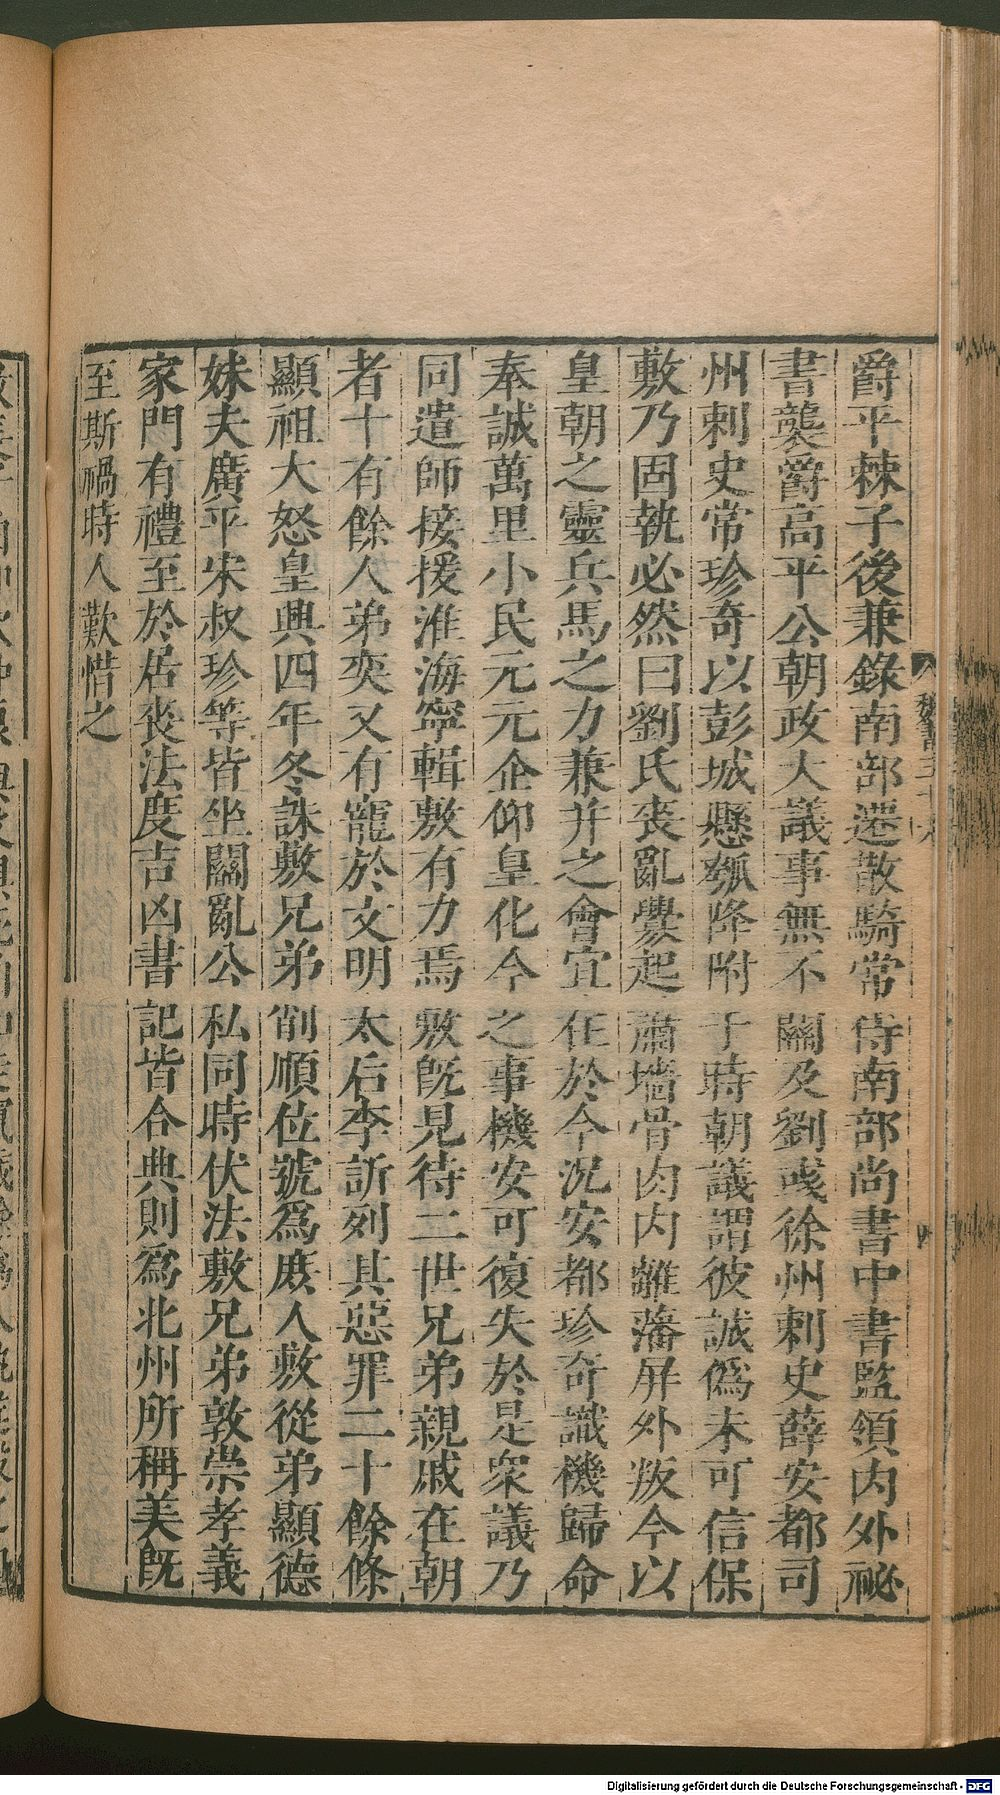 爵平棘子後兼錄南部遷散騎常侍南部尚書中書監領內外祕
書襲爵高平公朝政大議事無不關及劉彧徐州刺史薛安都司
州刺史常珍奇以彭城懸瓠降附于時朝議謂彼誠僞未可信保
敷乃固執必然曰劉氏喪亂釁起蕭墻骨肉內離藩屏外叛今以
皇朝之靈兵馬之力兼并之會宜在於今況安都珍奇識機歸命
奉誠萬里小民元元企仰皇化今之事機安可復失於是衆議乃
同遣師接援淮海寧輯敷有力焉敷旣見待二世兄弟親戚在朝
者十有餘人弟奕又有寵於文明太后李訢列其惡罪二十餘條
顯祖大怒皇興四年冬誅敷兄弟削順位號爲庶人敷從弟顯德
妹夫廣平宋叔珍等皆坐關亂公私同時伏法敷兄弟敦崇孝義
家門有禮至於居喪法度吉凶書記皆合典則爲北州所稱美旣
至斯禍時人歎惜之
Digitalisierung gefördert durch die Deutsche Forschungsgemeinschaft - DFG